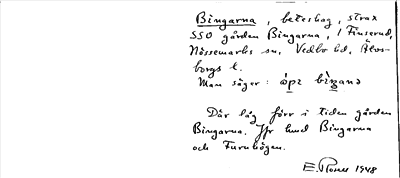 Bingarna, beteshag, strax
SSO gården Bingarna, 1 Finserud,
Nössemarks sn, Vedbo hd, Älvs-
borgs l.
Man säger: åpe bingana
Där låg förr i tiden gården
Bingarna. Jfr hmd Bingarna
och Furubögen.
E. 1948